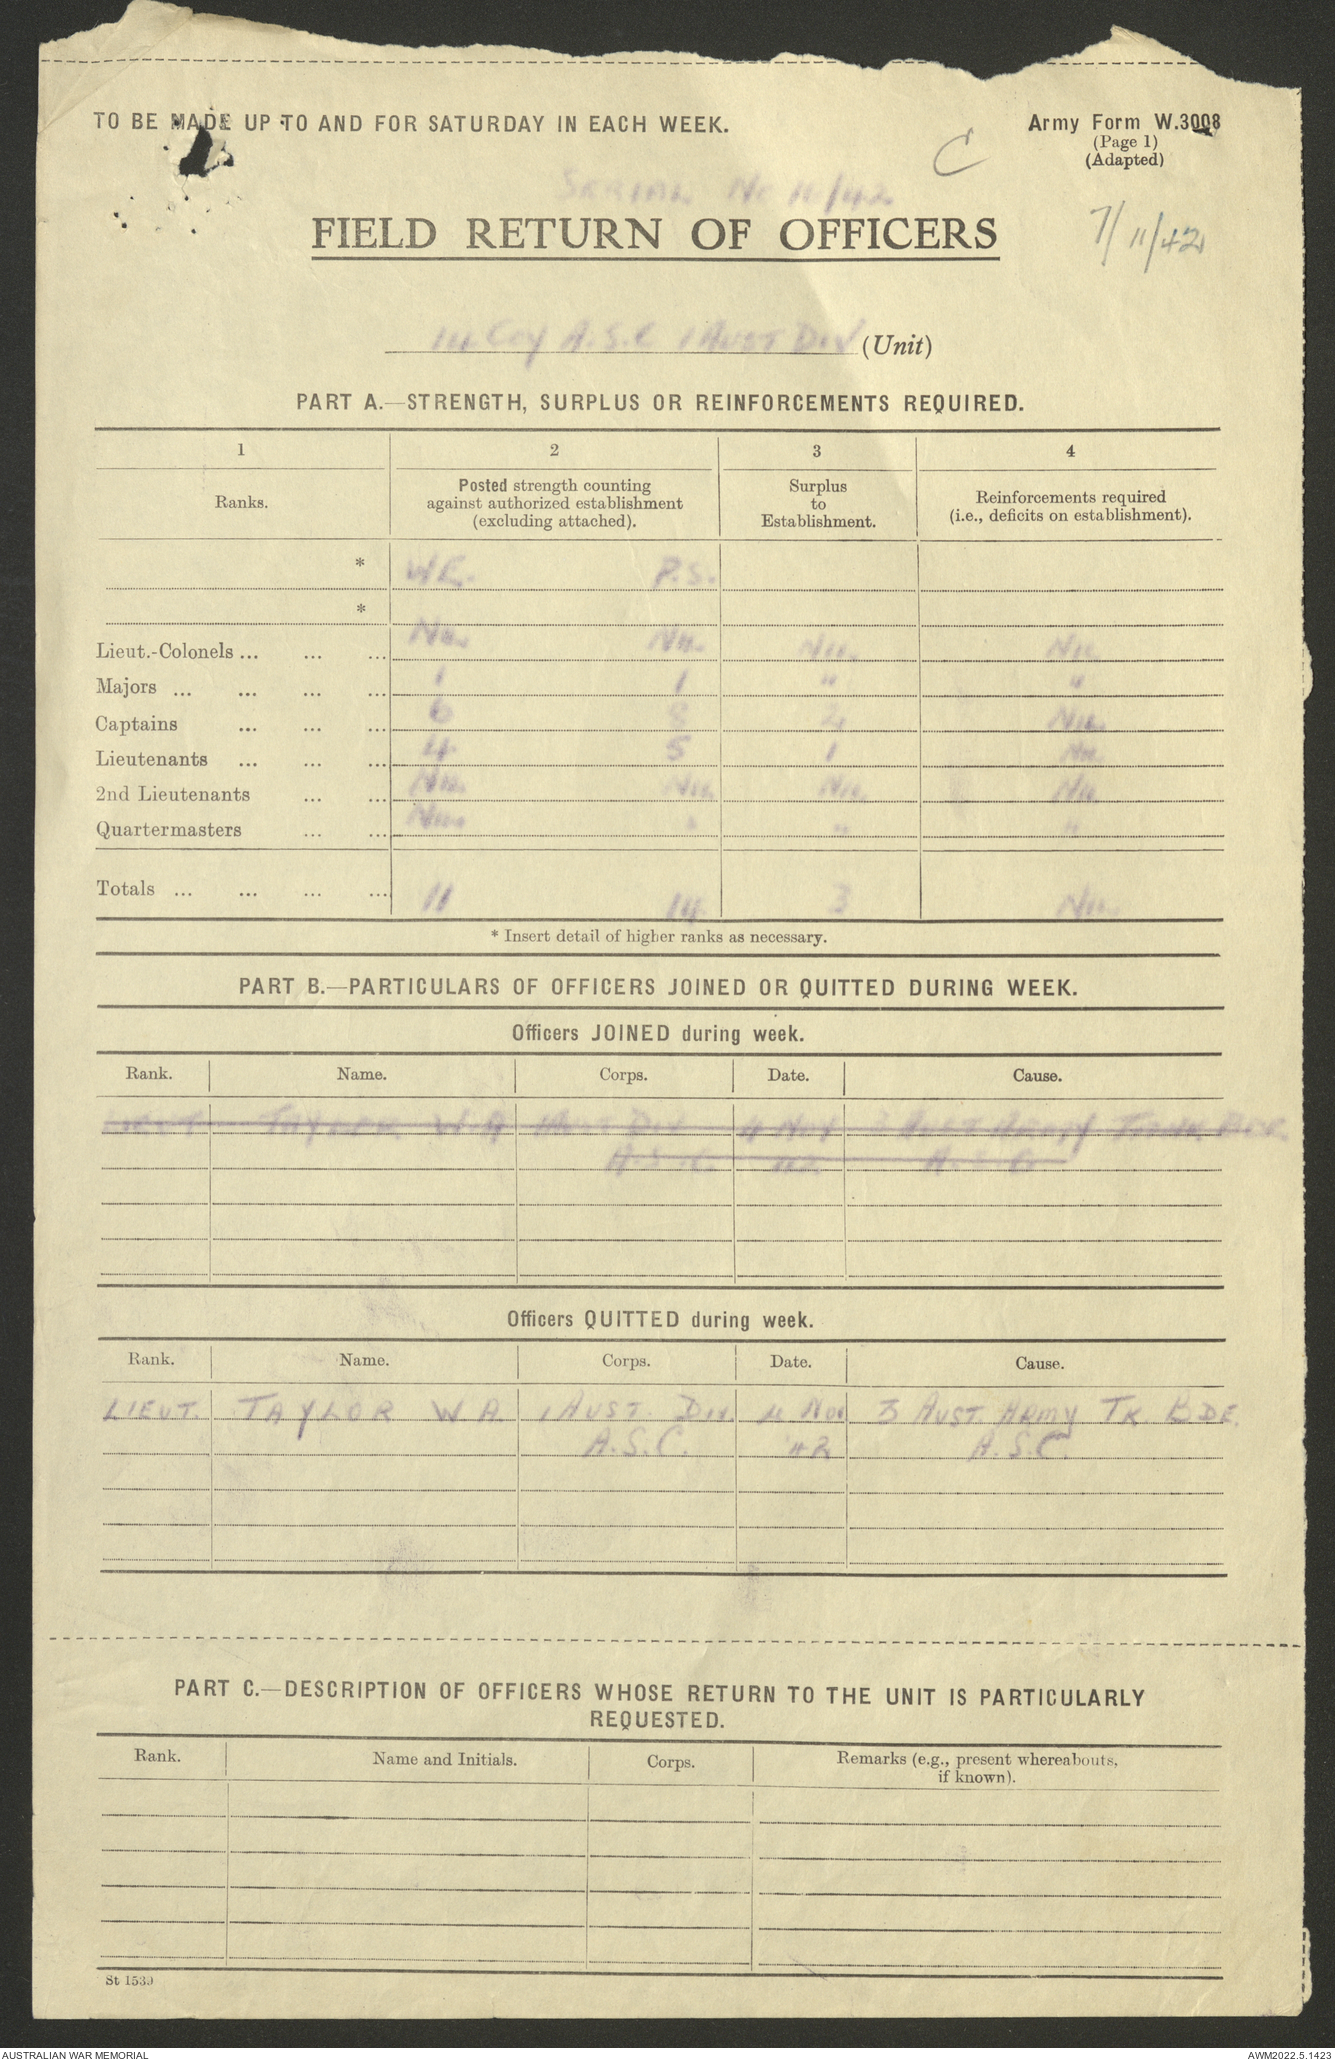 TO BE MADE UP TO AND FOR SATURDAY IN EACH WEEK.
Army Form W.3008
(Page 1)
(Adapted)
C
SERIAL No 11/42
7/11/42
FIELD RETURN OF OFFICERS
14 Coy A.S.C 1 AUST DIV (Unit)
PART A.—STRENGTH, SURPLUS OR REINFORCEMENTS REQUIRED.
1 2 3 4
Ranks. Posted strength counting against authorized establishment (excluding attached). Surplus to Establishment. Reinforcements required (i.e., deficits on establishment).
* W.E. P.S.
*
Lieut.-Colonels ... ... ... NIL. NIL. NIL. NIL.
Majors ... ... ... ... 1 1 " "
Captains ... ... ... 6 8 2 NIL.
Lieutenants ... ... ... 4 5 1 NIL.
2nd Lieutenants ... ... NIL. NIL. NIL. NIL.
Quartermasters ... ... NIL. " " "
Totals ... ... ... ... 11 14 3 NIL.
* Insert detail of higher ranks as necessary.
PART B.—PARTICULARS OF OFFICERS JOINED OR QUITTED DURING WEEK.
Officers JOINED during week.
Rank. Name. Corps. Date. Cause.
LIEUT TAYLOR W.A 1 AUST DIV 4 NOV 3 AUST ARMY TANK BDE.
A.S.C. 42 A.S.C
Officers QUITTED during week.
Rank. Name. Corps. Date. Cause.
LIEUT. TAYLOR W.A. 1 AUST. DIV. 4 NOV 3 AUST. ARMY TK. BDE.
A.S.C. '42 A.S.C.
PART C.—DESCRIPTION OF OFFICERS WHOSE RETURN TO THE UNIT IS PARTICULARLY
REQUESTED.
Rank. Name and Initials. Corps. Remarks (e.g., present whereabouts, if known).
St 1539
AUSTRALIAN WAR MEMORIAL
AWM2022.5.1423